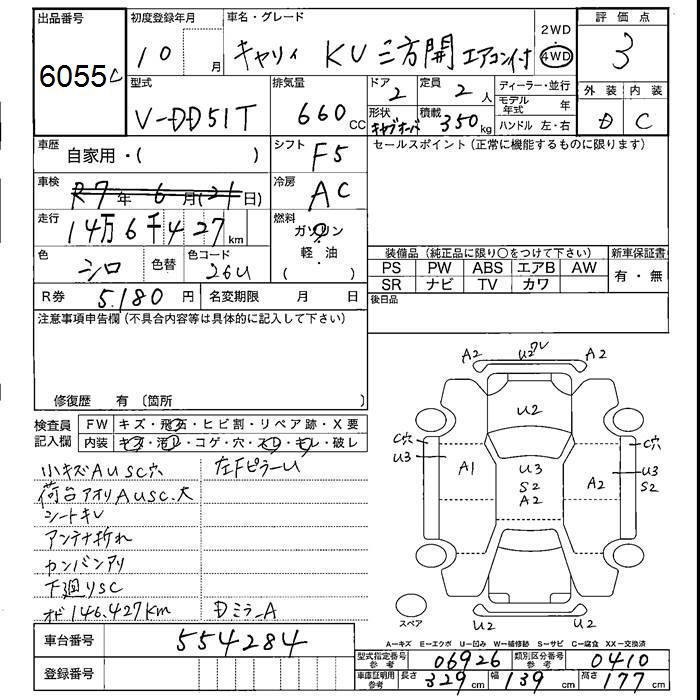 出品番号
6055
初度登録年月
10 月
車名・グレード
キャリィ KU 三方開 エアコン付
2WD
4WD
評価点
3
外装 内装
D C
型式
V-DD51T
排気量
660 CC
ドア
2
定員
2 人
形状
キャブオーバ
積載
350 kg
ディーラー・並行
モデル年式 年
ハンドル 左・右
車歴
自家用・( )
シフト
F5
車検
R7年 6月(21日)
冷房
AC
走行
14万6千427 km
燃料
ガソリン
軽・油
( )
色
シロ
色替
色コード
26U
R券
5.180 円
名変期限 月 日
セールスポイント(正常に機能するものに限ります)
装備品(純正品に限り○をつけて下さい)
PS PW ABS エアB AW
SR ナビ TV カワ
新車保証書
有・無
後日品
注意事項申告欄(不具合内容等は具体的に記入して下さい)
修復歴 有〔箇所 〕
検査員記入欄
FW キズ・飛石・ヒビ割・リペア跡・X要
内装 キズ・汚レ・コゲ・穴・スレ・キレ・破レ
小キズAUSC穴
左Fピラーu
荷台アオリAUSC.大
シートキレ
アンテナ折れ
カンバンアリ
下廻りSC
オド146.427km
DミラーA
A2 U2ワレ A2
U2
C穴 U3 A1 U3 S2 A2 A2 C穴 U3 S2
スペア
U2 U2
A-キズ E-エクボ U-凹み W-補修跡 S-サビ C-腐食 XX-交換済
車台番号
554284
登録番号
型式指定番号参考 06926
類別区分番号参考 0410
車庫証明用参考 長さ 329 cm 幅 139 cm 高さ 177 cm